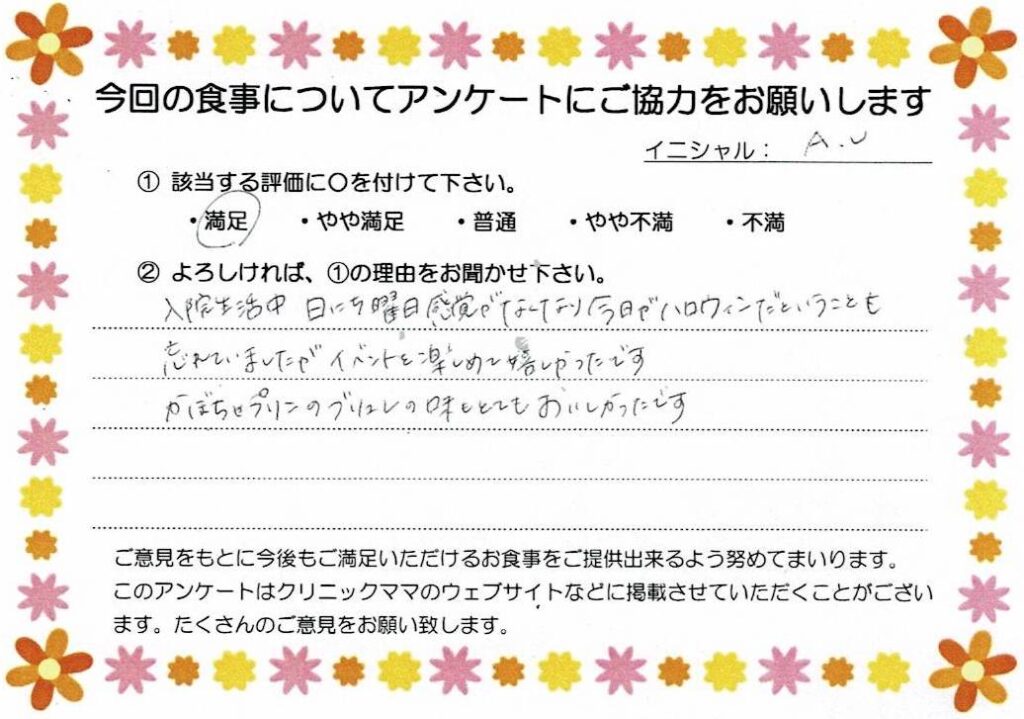 今回の食事についてアンケートにご協力をお願いします
イニシャル： A.U
① 該当する評価に〇を付けて下さい。
・満足 ・やや満足 ・普通 ・やや不満 ・不満
② よろしければ、①の理由をお聞かせ下さい。
入院生活中 日にち曜日感覚がなくなり今日がハロウィンだということも
忘れていましたが イベントを楽しめて嬉しかったです
かぼちゃプリンのブリュレの味もとてもおいしかったです
ご意見をもとに今後もご満足いただけるお食事をご提供出来るよう努めてまいります。
このアンケートはクリニックママのウェブサイトなどに掲載させていただくことがござい
ます。たくさんのご意見をお願い致します。